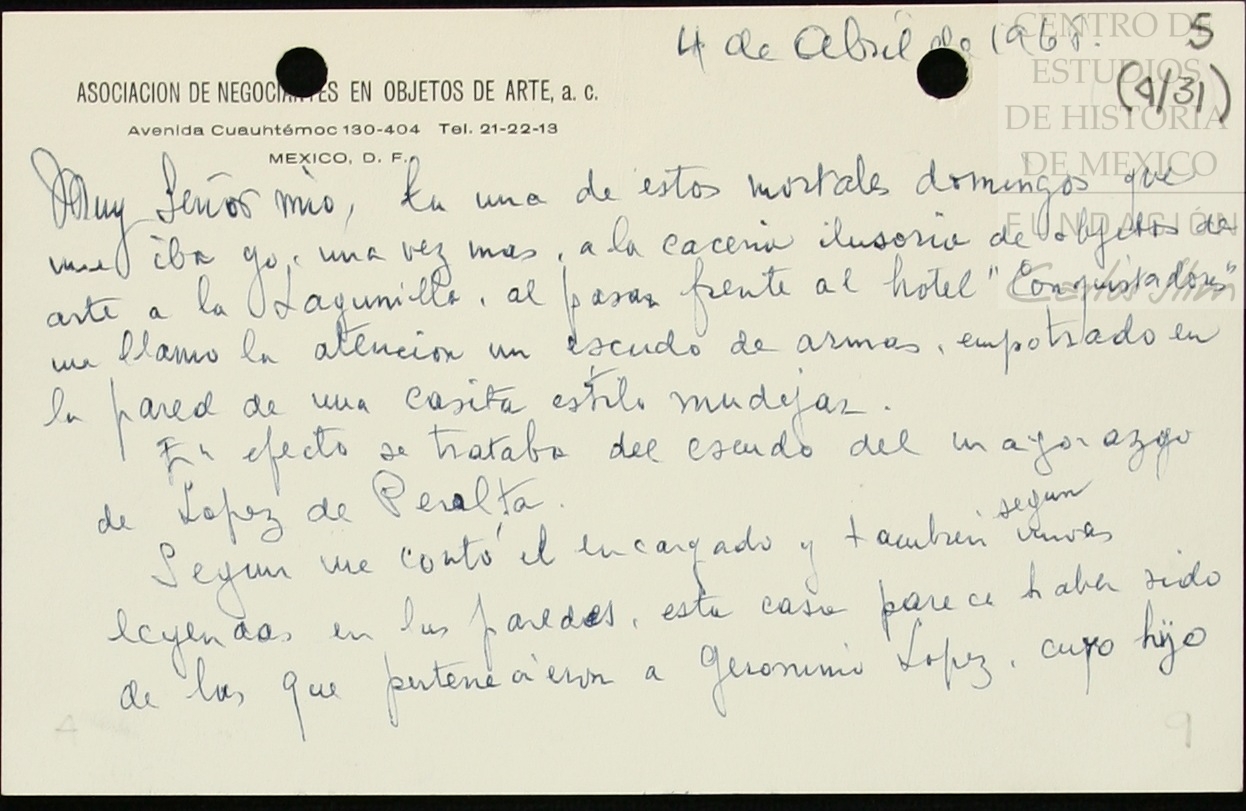 4 de Abril de 1968. 5
(4/31)
CENTRO DE
ESTUDIOS
DE HISTORIA
DE MEXICO
FUNDACIÓN
Carlos Slim
ASOCIACION DE NEGOCIANTES EN OBJETOS DE ARTE, a. c.
Avenida Cuauhtémoc 130-404 Tel. 21-22-13
MEXICO, D. F.
Muy Señor mio, En una de estos mortales domingos que
me iba yo, una vez mas, a la caceria ilusoria de objetos de
arte a la Lagunilla, al pasar frente al hotel "Conquistadores"
me llamo la atencion un escudo de armas, empotrado en
la pared de una casita estilo mudejar.
En efecto se trataba del escudo del mayorazgo
de Lopez de Peralta.
Segun me contó el encargado y tambien segun varias
leyendas en las paredes, esta casa parece haber sido
de las que pertenecieron a Geronimo Lopez, cuyo hijo
9